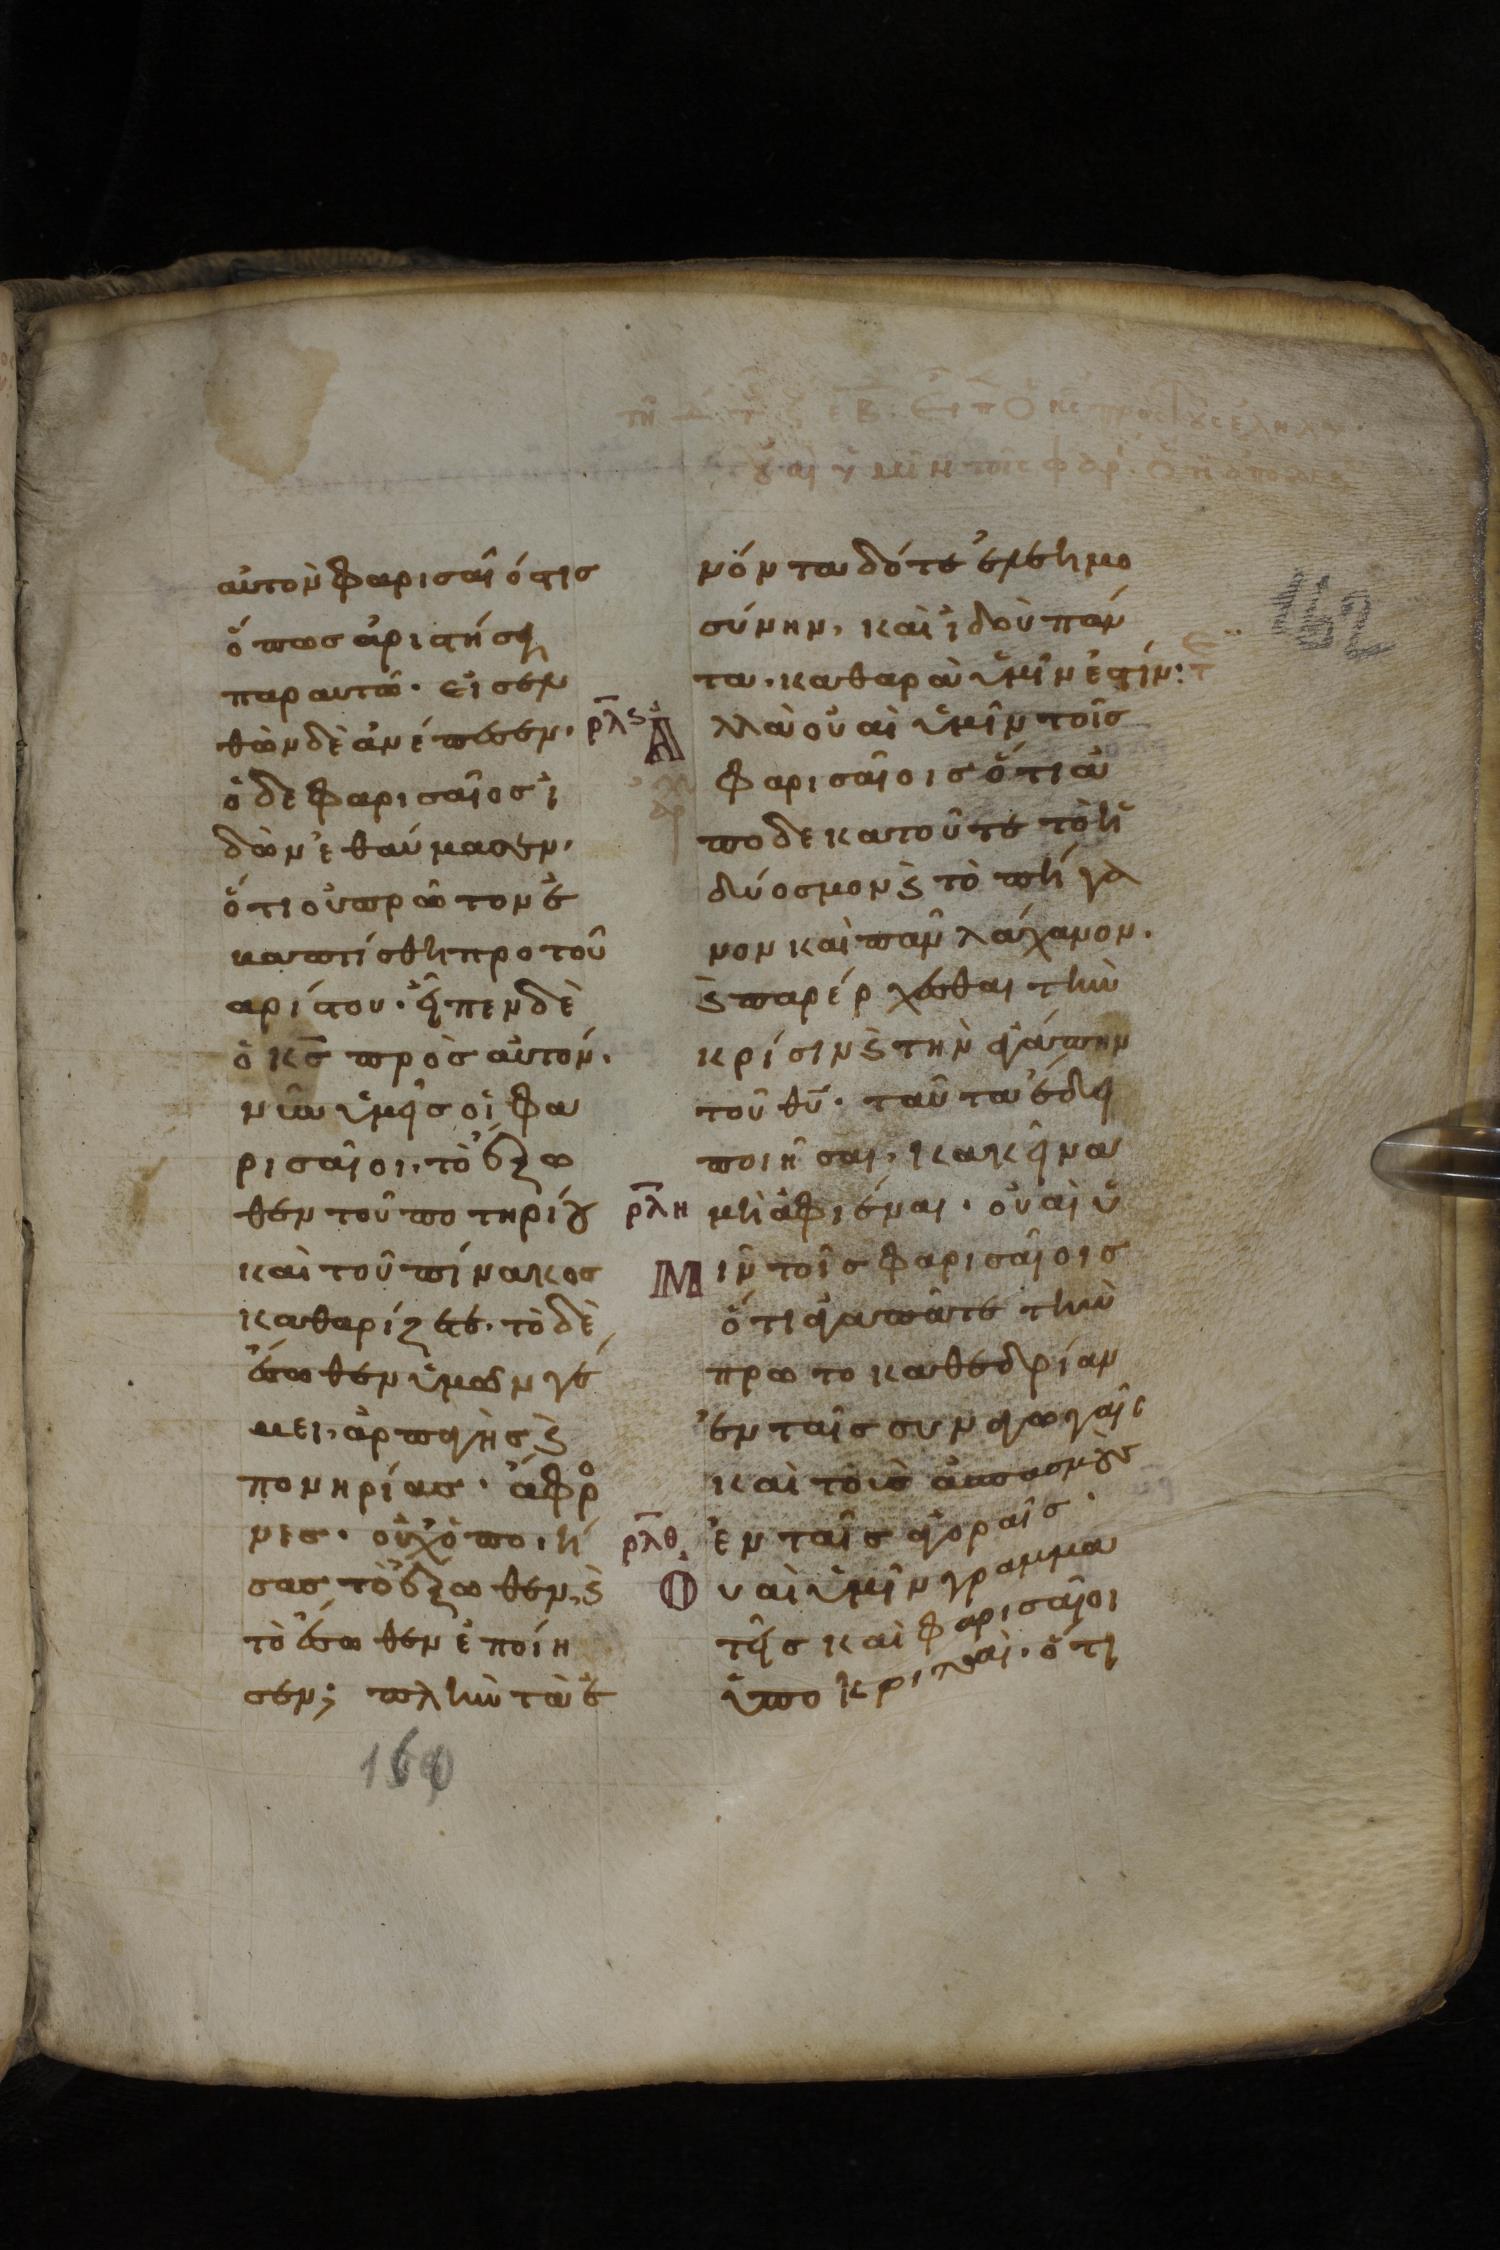 τῆ δ τ ς εβ. Ειπ Ο κς προς τους εληλυ
οὐαὶ ὑμῖν τοῖς φαρ. Ὅτι αποδεκα
162
αὐτὸν φαρισαῖός τις
ὅπως ἀριστήσῃ
παρ αυτῶ. εἰσελ
θὼν δὲ ἀνέπεσεν.
ὁ δε φαρισαῖος ἰ
δὼν ἐθαύμασεν,
ὅτι οὐ πρῶτον ἐ
βαπτίσθη προ τοῦ
αρίστου. εἶπεν δὲ
ὁ κς πρὸς αὐτόν.
νῦν ὑμεῖς οἱ φα
ρισαῖοι, τὸ ἔξω
θεν τοῦ ποτηρίου
καὶ τοῦ πίνακος
καθαρίζετε. τὸ δὲ
ἔσωθεν ὑμῶν γέ
μει, ἁρπαγῆς ϗ
πονηρίας. ἄφρο
νες. οὐχ ὁ ποιή
σας τὸ ἔξωθεν, ϗ
τὸ ἔσωθεν ἐποίη
σεν; πλὴν τὰ ἐ
164
νόντα δότε ἐλεημο
σύνην, καὶ ἰδοὺ πάν
τα, καθαρὰ ὑμῖν ἐστίν: τε
ρλς Ἀλλὰ οὐαὶ ὑμῖν τοῖς
αρ
φαρισαίοις ὅτι ἀ
ποδεκατοῦτε τὸ ἡ
δύοσμον ϗ τὸ πήγα
νον καὶ πᾶν λάχανον.
ϗ παρέρχεσθαι τὴν
κρίσιν ϗ τὴν ἀγάπην
τοῦ θῦ. ταῦτα ἔδει
ποιῆσαι, κακεῖνα
ρλη μὴ ἀφιέναι. οὐαὶ ὑ
Μῖν τοῖς φαρισαίοις
ὅτι ἀγαπᾶτε τὴν
πρωτοκαθεδρίαν
ἐν ταῖς συναγωγαῖς
καὶ τοὺς ἀσπασμοὺς
ρλθ ἐν ταῖς ἀγοραῖς.
Οὐαὶ ὑμῖν γραμμα
τεῖς καὶ φαρισαῖοι
ὑποκριταὶ. ὅτι